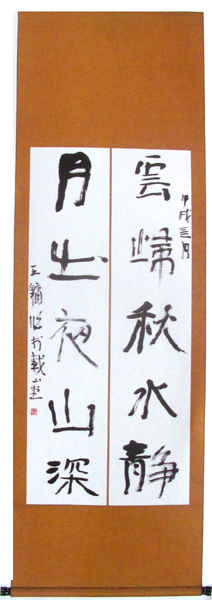 雲歸秋水靜
甲戌月
月出夜山深
王鏞